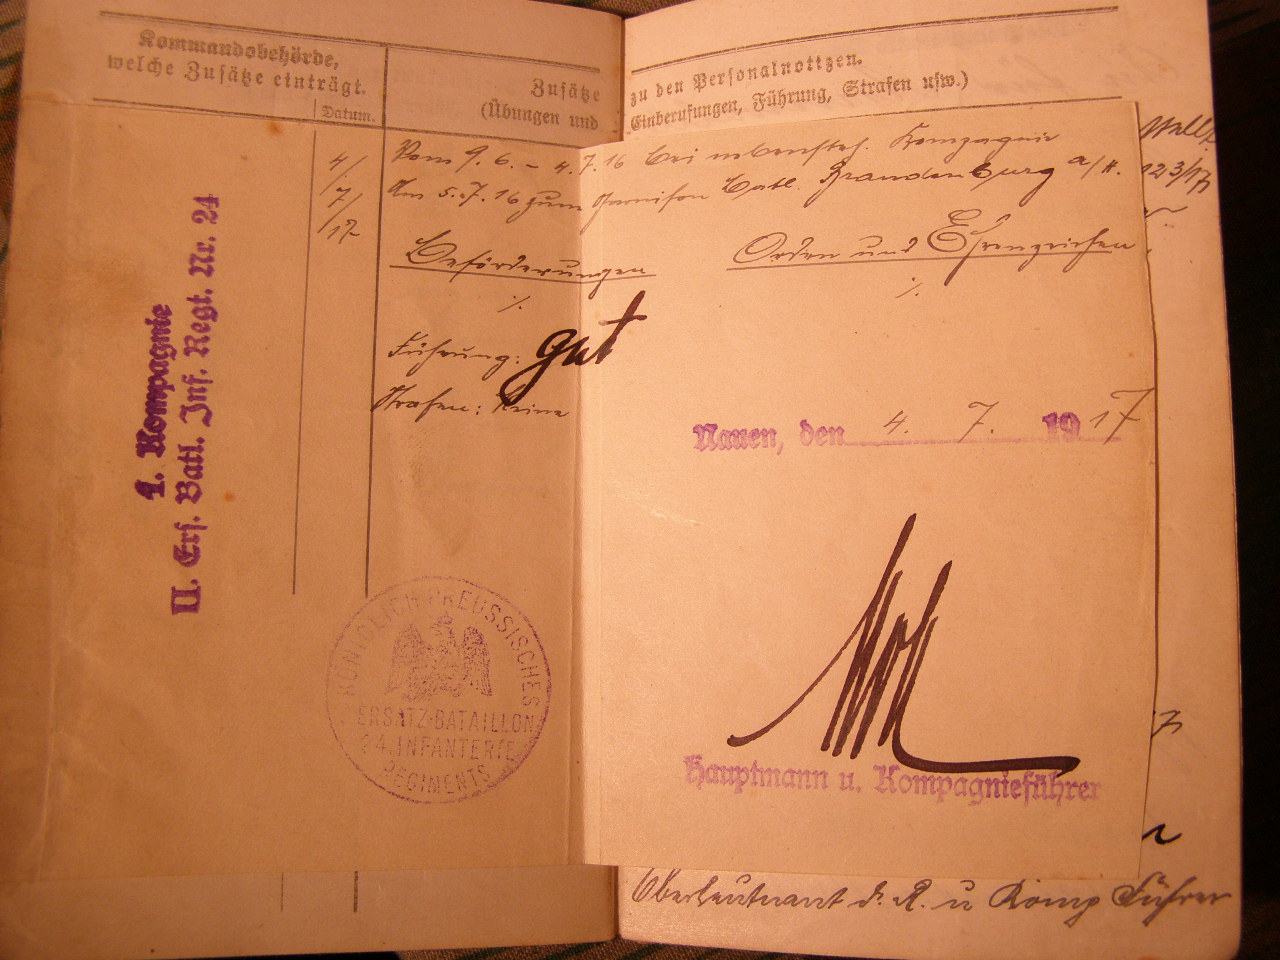 Kommandobehörde,
welche Zusätze einträgt.
Datum.
Zusätze
(Übungen und
zu den Personalnotizen.
Einberufungen, Führung, Strafen usw.)
4/
7/
17
Vom 9.6. – 4.7.16 bei nebensteh. Kompagnie
Am 5.7.16 zum Garnison Batl. Brandenburg a/H. 123/17
Beförderungen
Orden und Ehrenzeichen
./.
./.
Führung: gut
Strafen: Keine
1. Kompagnie
II. Ers. Batl. Inf. Regt. Nr. 24
Nauen, den 4. 7. 1917
KÖNIGLICH PREUSSISCHES
ERSATZ-BATAILLON
24. INFANTERIE
REGIMENTS
Hauptmann u. Kompagnieführer
Oberleutnant d. R. u Komp Führer